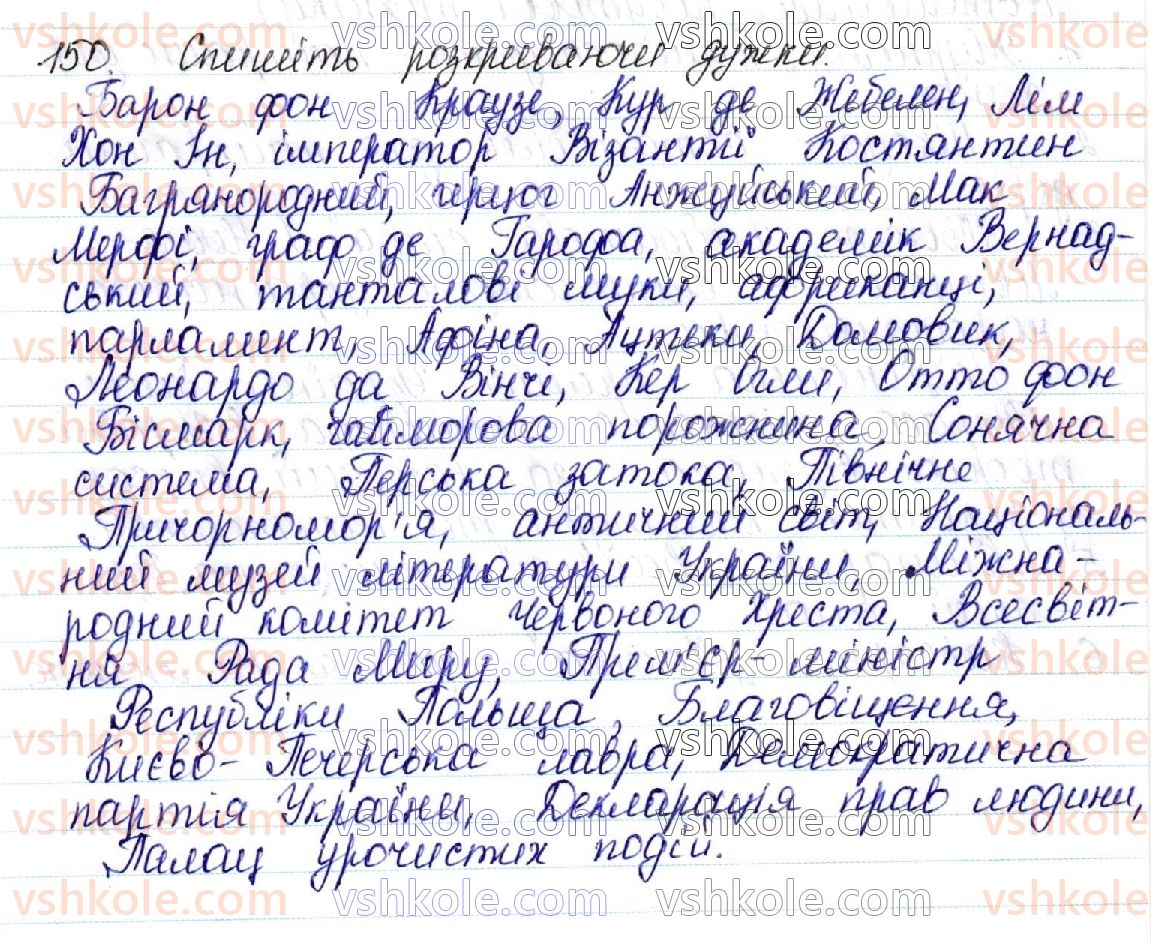 150. Спишіть розкриваючи дужки.
Барон фон Краузе, Кур де Жебелен, Лім
Хон Ін, імператор Візантії Костянтин
Багрянородний, герцог Анжуйський, Мак
Мерфі, граф де Гарофа, академік Вернад-
ський, танталові муки, африканці,
парламент, Афіна, Ацтеки, Домовик,
Леонардо да Вінчі, Кер Огли, Отто фон
Бісмарк, гайморова порожнина, Сонячна
система, Перська затока, Північне
Причорномор'я, античний світ, Національ-
ний музей літератури України, Міжна-
родний комітет Червоного Хреста, Всесвіт-
ня Рада Миру, Прем'єр-міністр
Республіки Польща, Благовіщення,
Києво-Печерська лавра, Демократична
партія України, Декларація прав людини,
Палац урочистих подій.